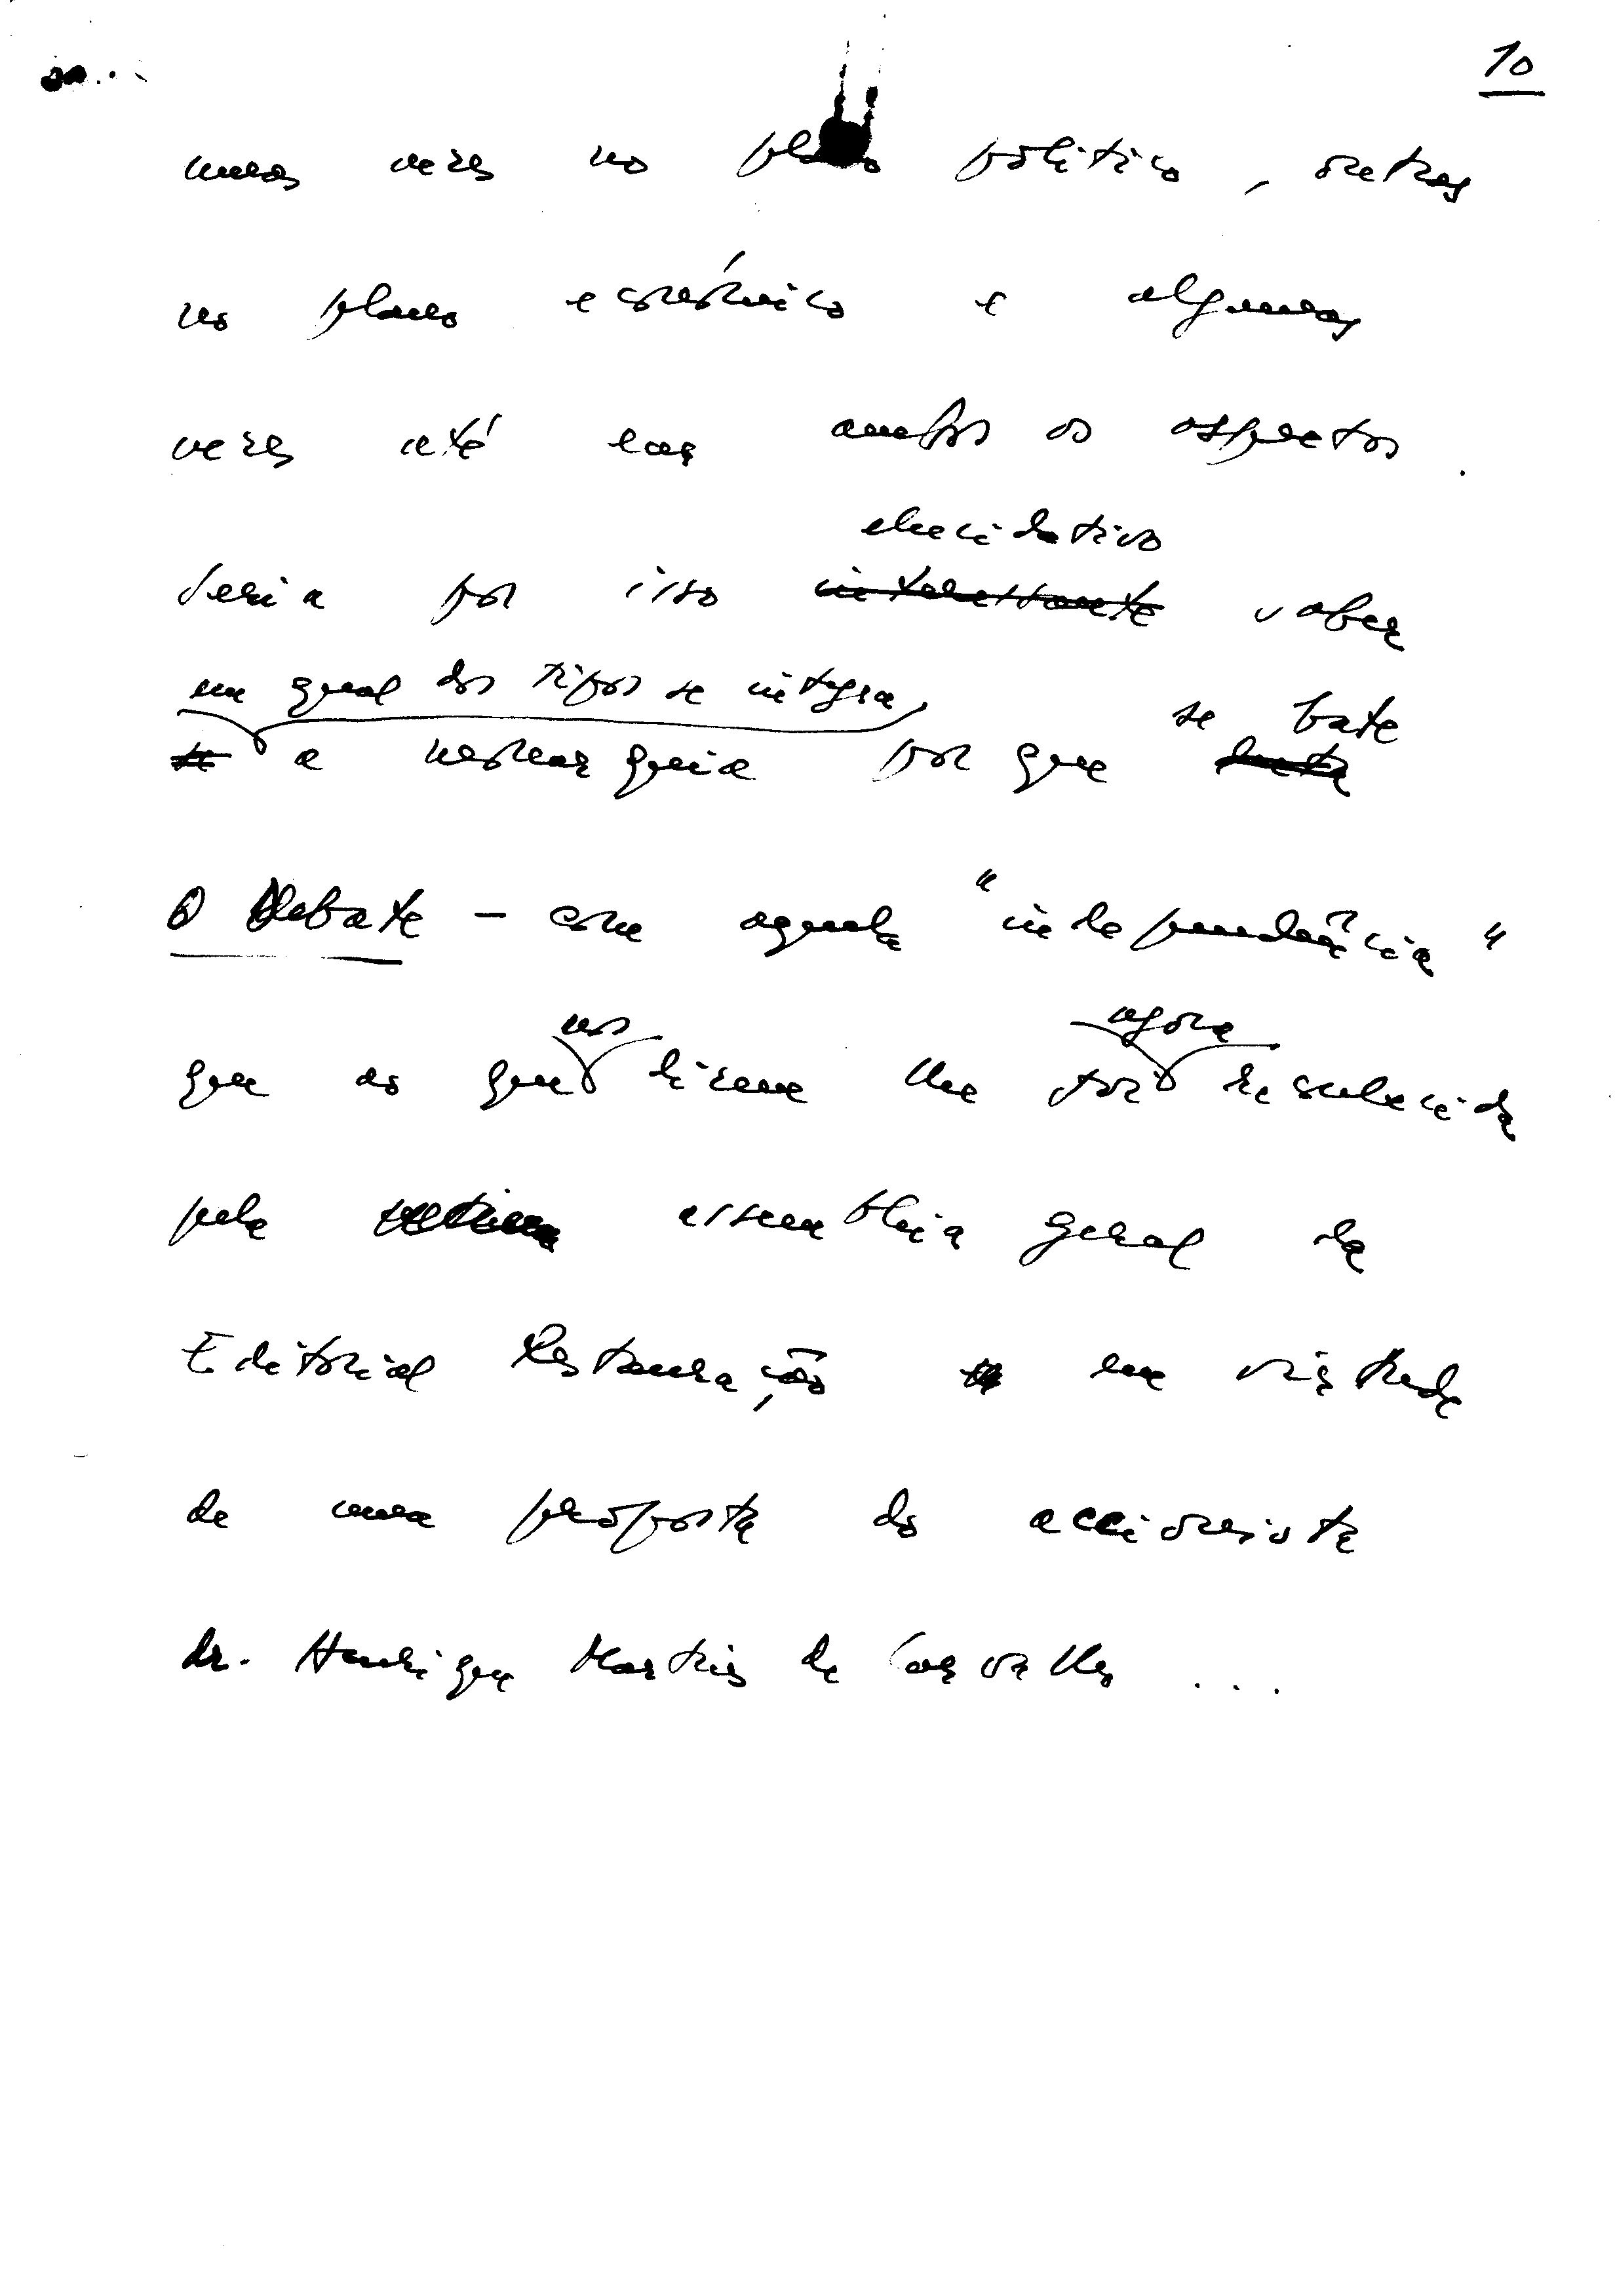 10
umas vezes no plano politico, outras
no plano económico e algumas
vezes até em ambos os aspectos.
elucidativo
Seria por isso interessante saber
em qual dos tipos se integra,
se bate
se a monarquia por que luta
O Debate - com aquela "independência"
nos agora
que as que dizem lhe foi reconhecida
pela assembleia geral da
Editorial Restauração em virtude
de uma proposta do accionista
dr. Henrique Martins de Carvalho ...